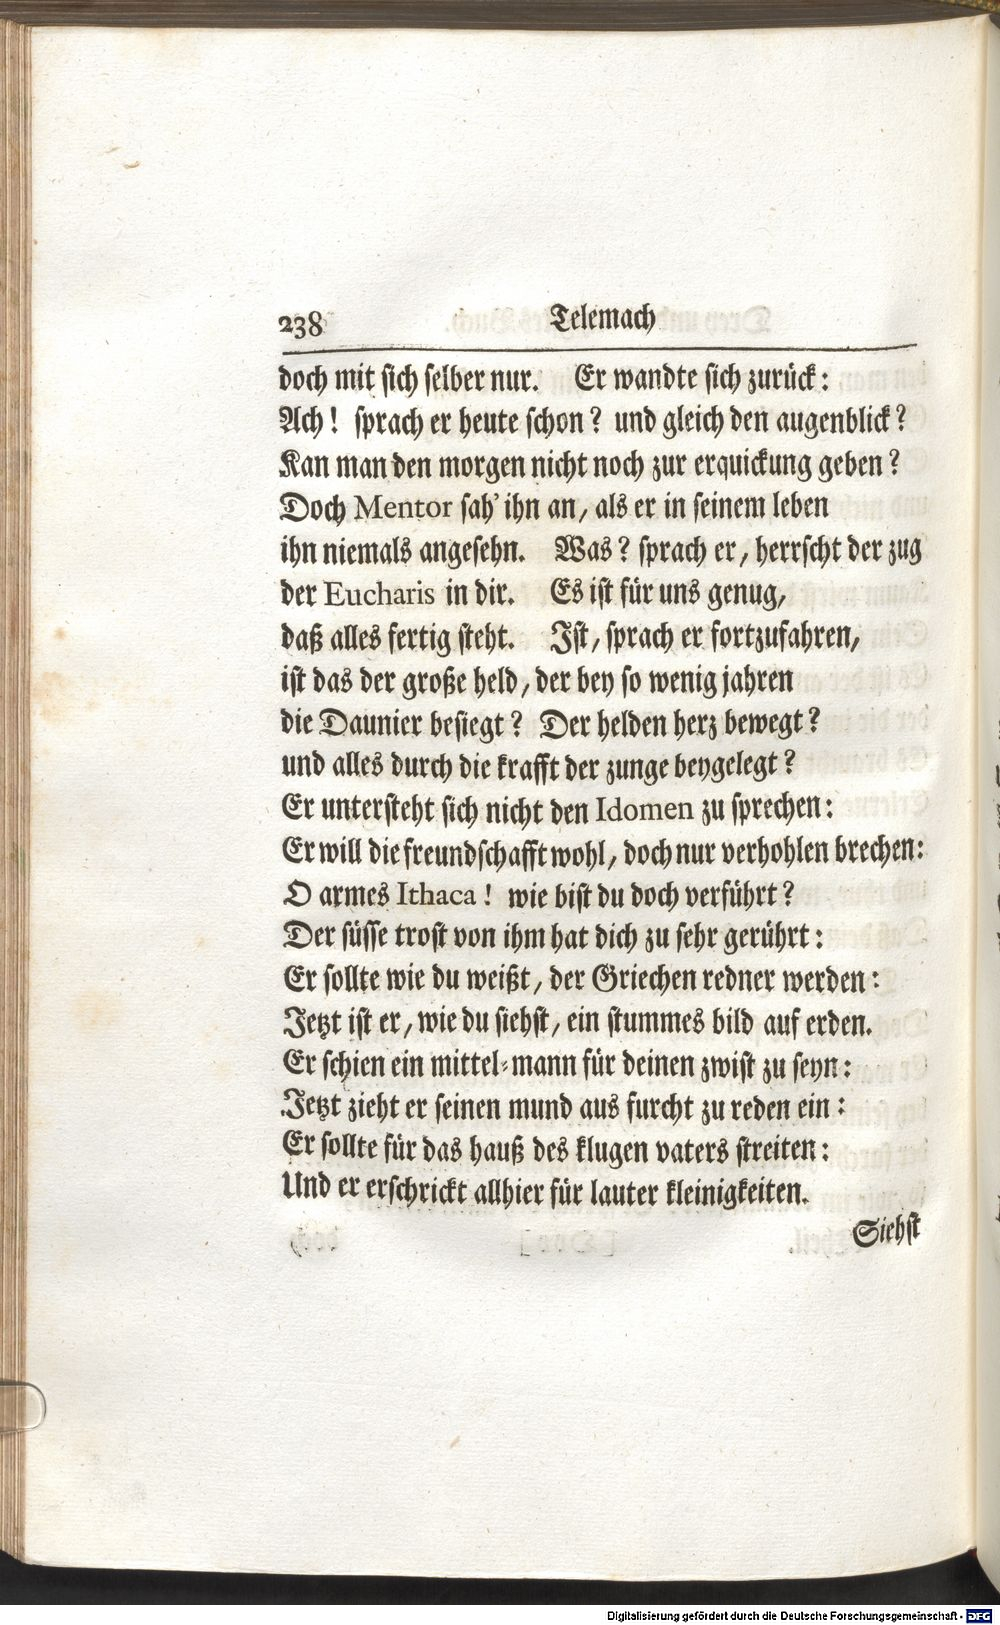 238 Telemach
doch mit sich selber nur. Er wandte sich zurück:
Ach! sprach er heute schon? und gleich den augenblick?
Kan man den morgen nicht noch zur erquickung geben?
Doch Mentor sah' ihn an, als er in seinem leben
ihn niemals angesehn. Was? sprach er, herrscht der zug
der Eucharis in dir. Es ist für uns genug,
daß alles fertig steht. Ist, sprach er fortzufahren,
ist das der große held, der bey so wenig jahren
die Daunier besiegt? Der helden herz bewegt?
und alles durch die krafft der zunge beygelegt?
Er untersteht sich nicht den Idomen zu sprechen:
Er will die freundschafft wohl, doch nur verhohlen brechen:
O armes Ithaca! wie bist du doch verführt?
Der süsse trost von ihm hat dich zu sehr gerührt:
Er sollte wie du weißt, der Griechen redner werden:
Jetzt ist er, wie du siehst, ein stummes bild auf erden.
Er schien ein mittel-mann für deinen zwist zu seyn:
Jetzt zieht er seinen mund aus furcht zu reden ein:
Er sollte für das hauß des klugen vaters streiten:
Und er erschrickt allhier für lauter kleinigkeiten.
Siehst
Digitalisierung gefördert durch die Deutsche Forschungsgemeinschaft - DFG